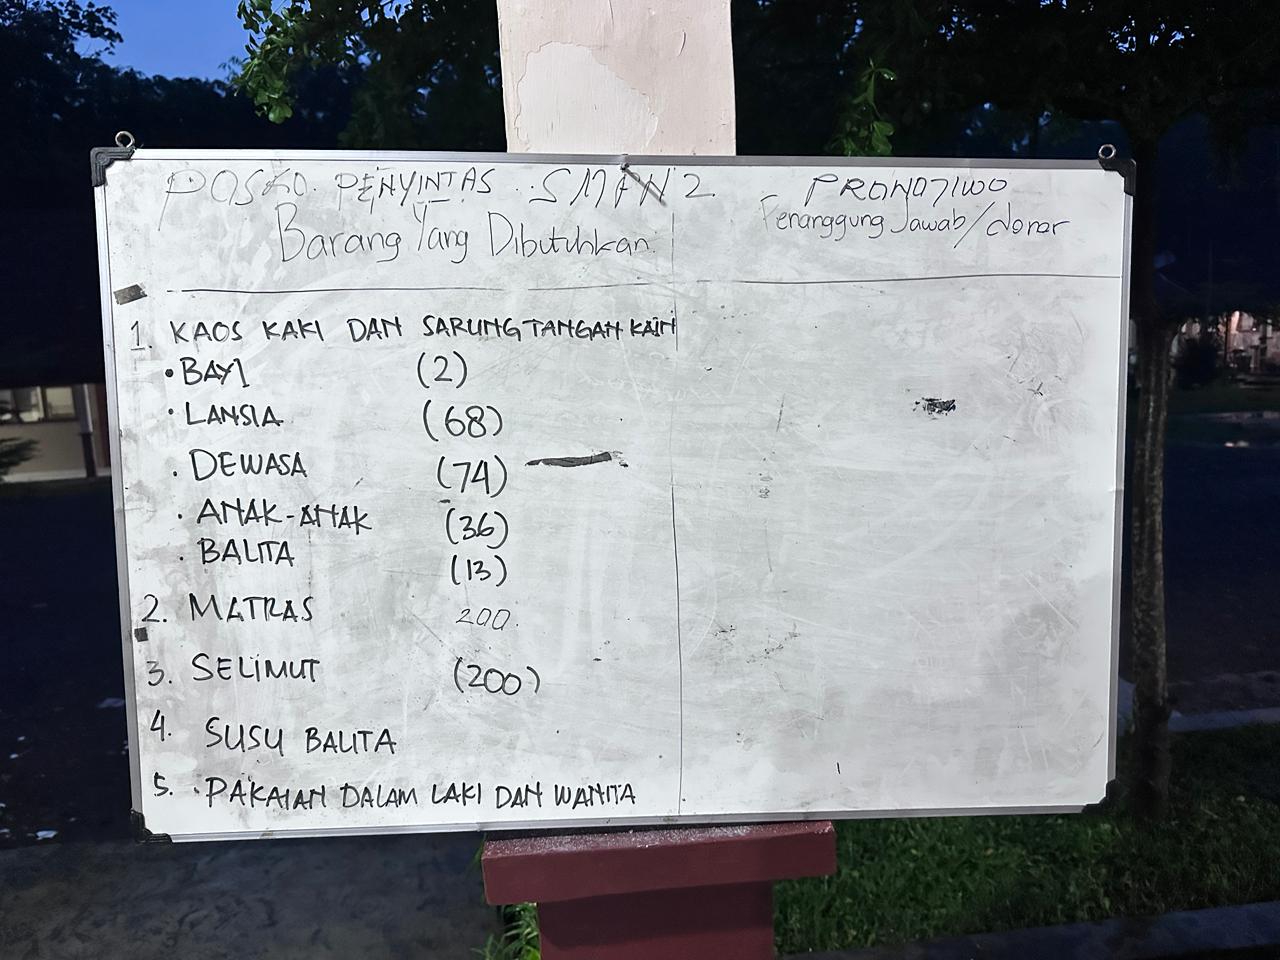 POSKO PENYINTAS SMAN 2 PRONOJIWO
Barang Yang Dibutuhkan Penanggung Jawab/donor
1. KAOS KAKI DAN SARUNG TANGAN KAIN
• BAYI (2)
• LANSIA (68)
• DEWASA (74)
• ANAK-ANAK (36)
• BALITA (13)
2. MATRAS 200
3. SELIMUT (200)
4. SUSU BALITA
5. PAKAIAN DALAM LAKI DAN WANITA